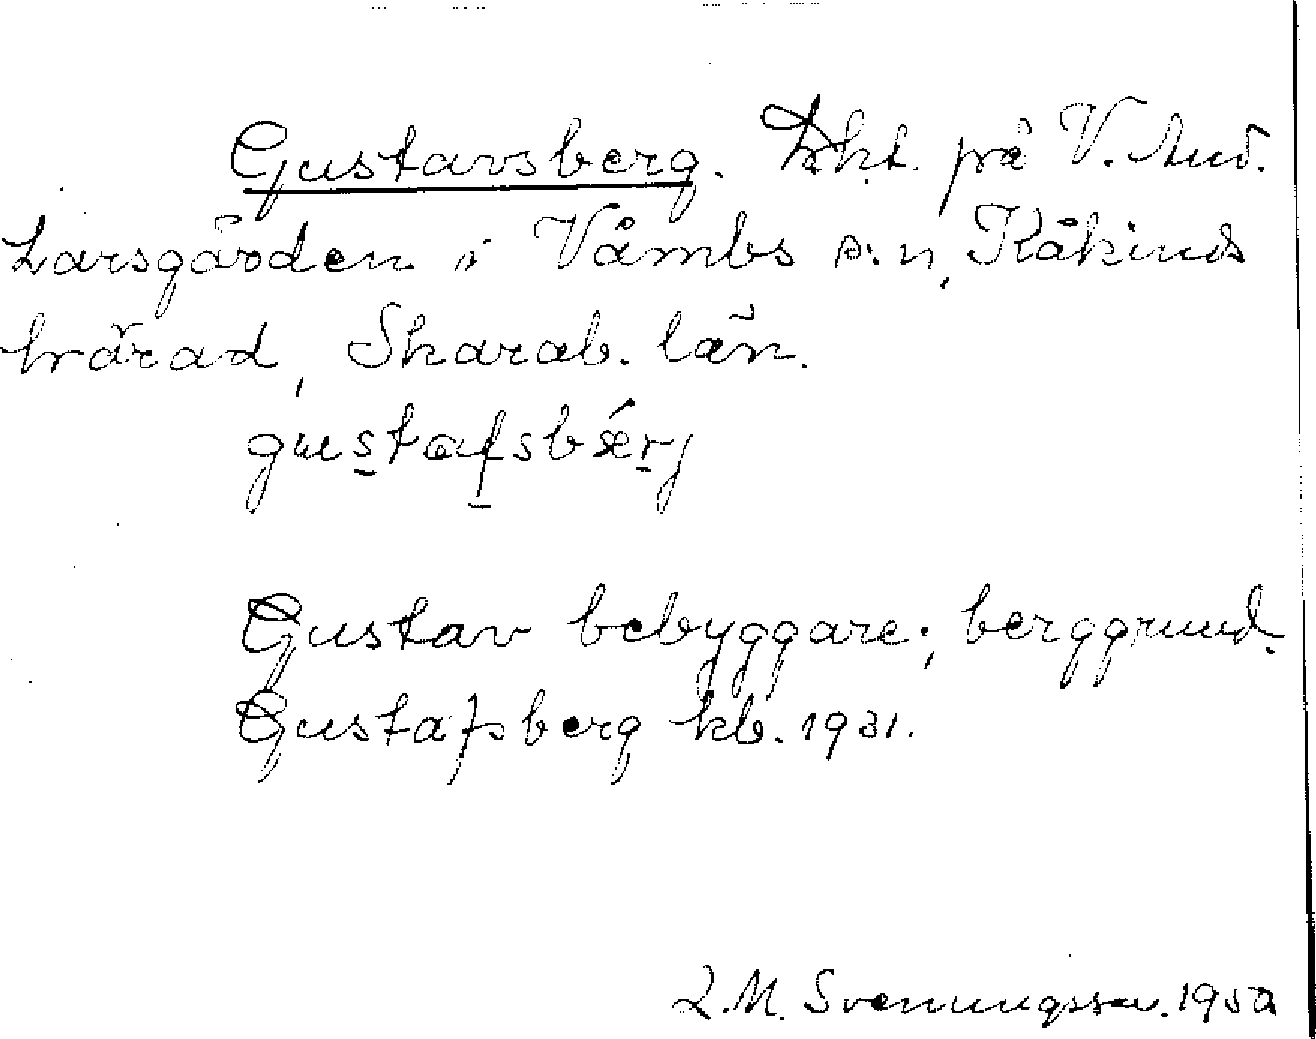 Gustavsberg. lht. på V. And.
Larsgården i Våmbs s:n, Kåkinds
härad, Skarab. län.
gustafsbærj
Gustav bebyggare; berggrund.
Gustafsberg kb. 1931.
L.M. Svenungsson. 1950